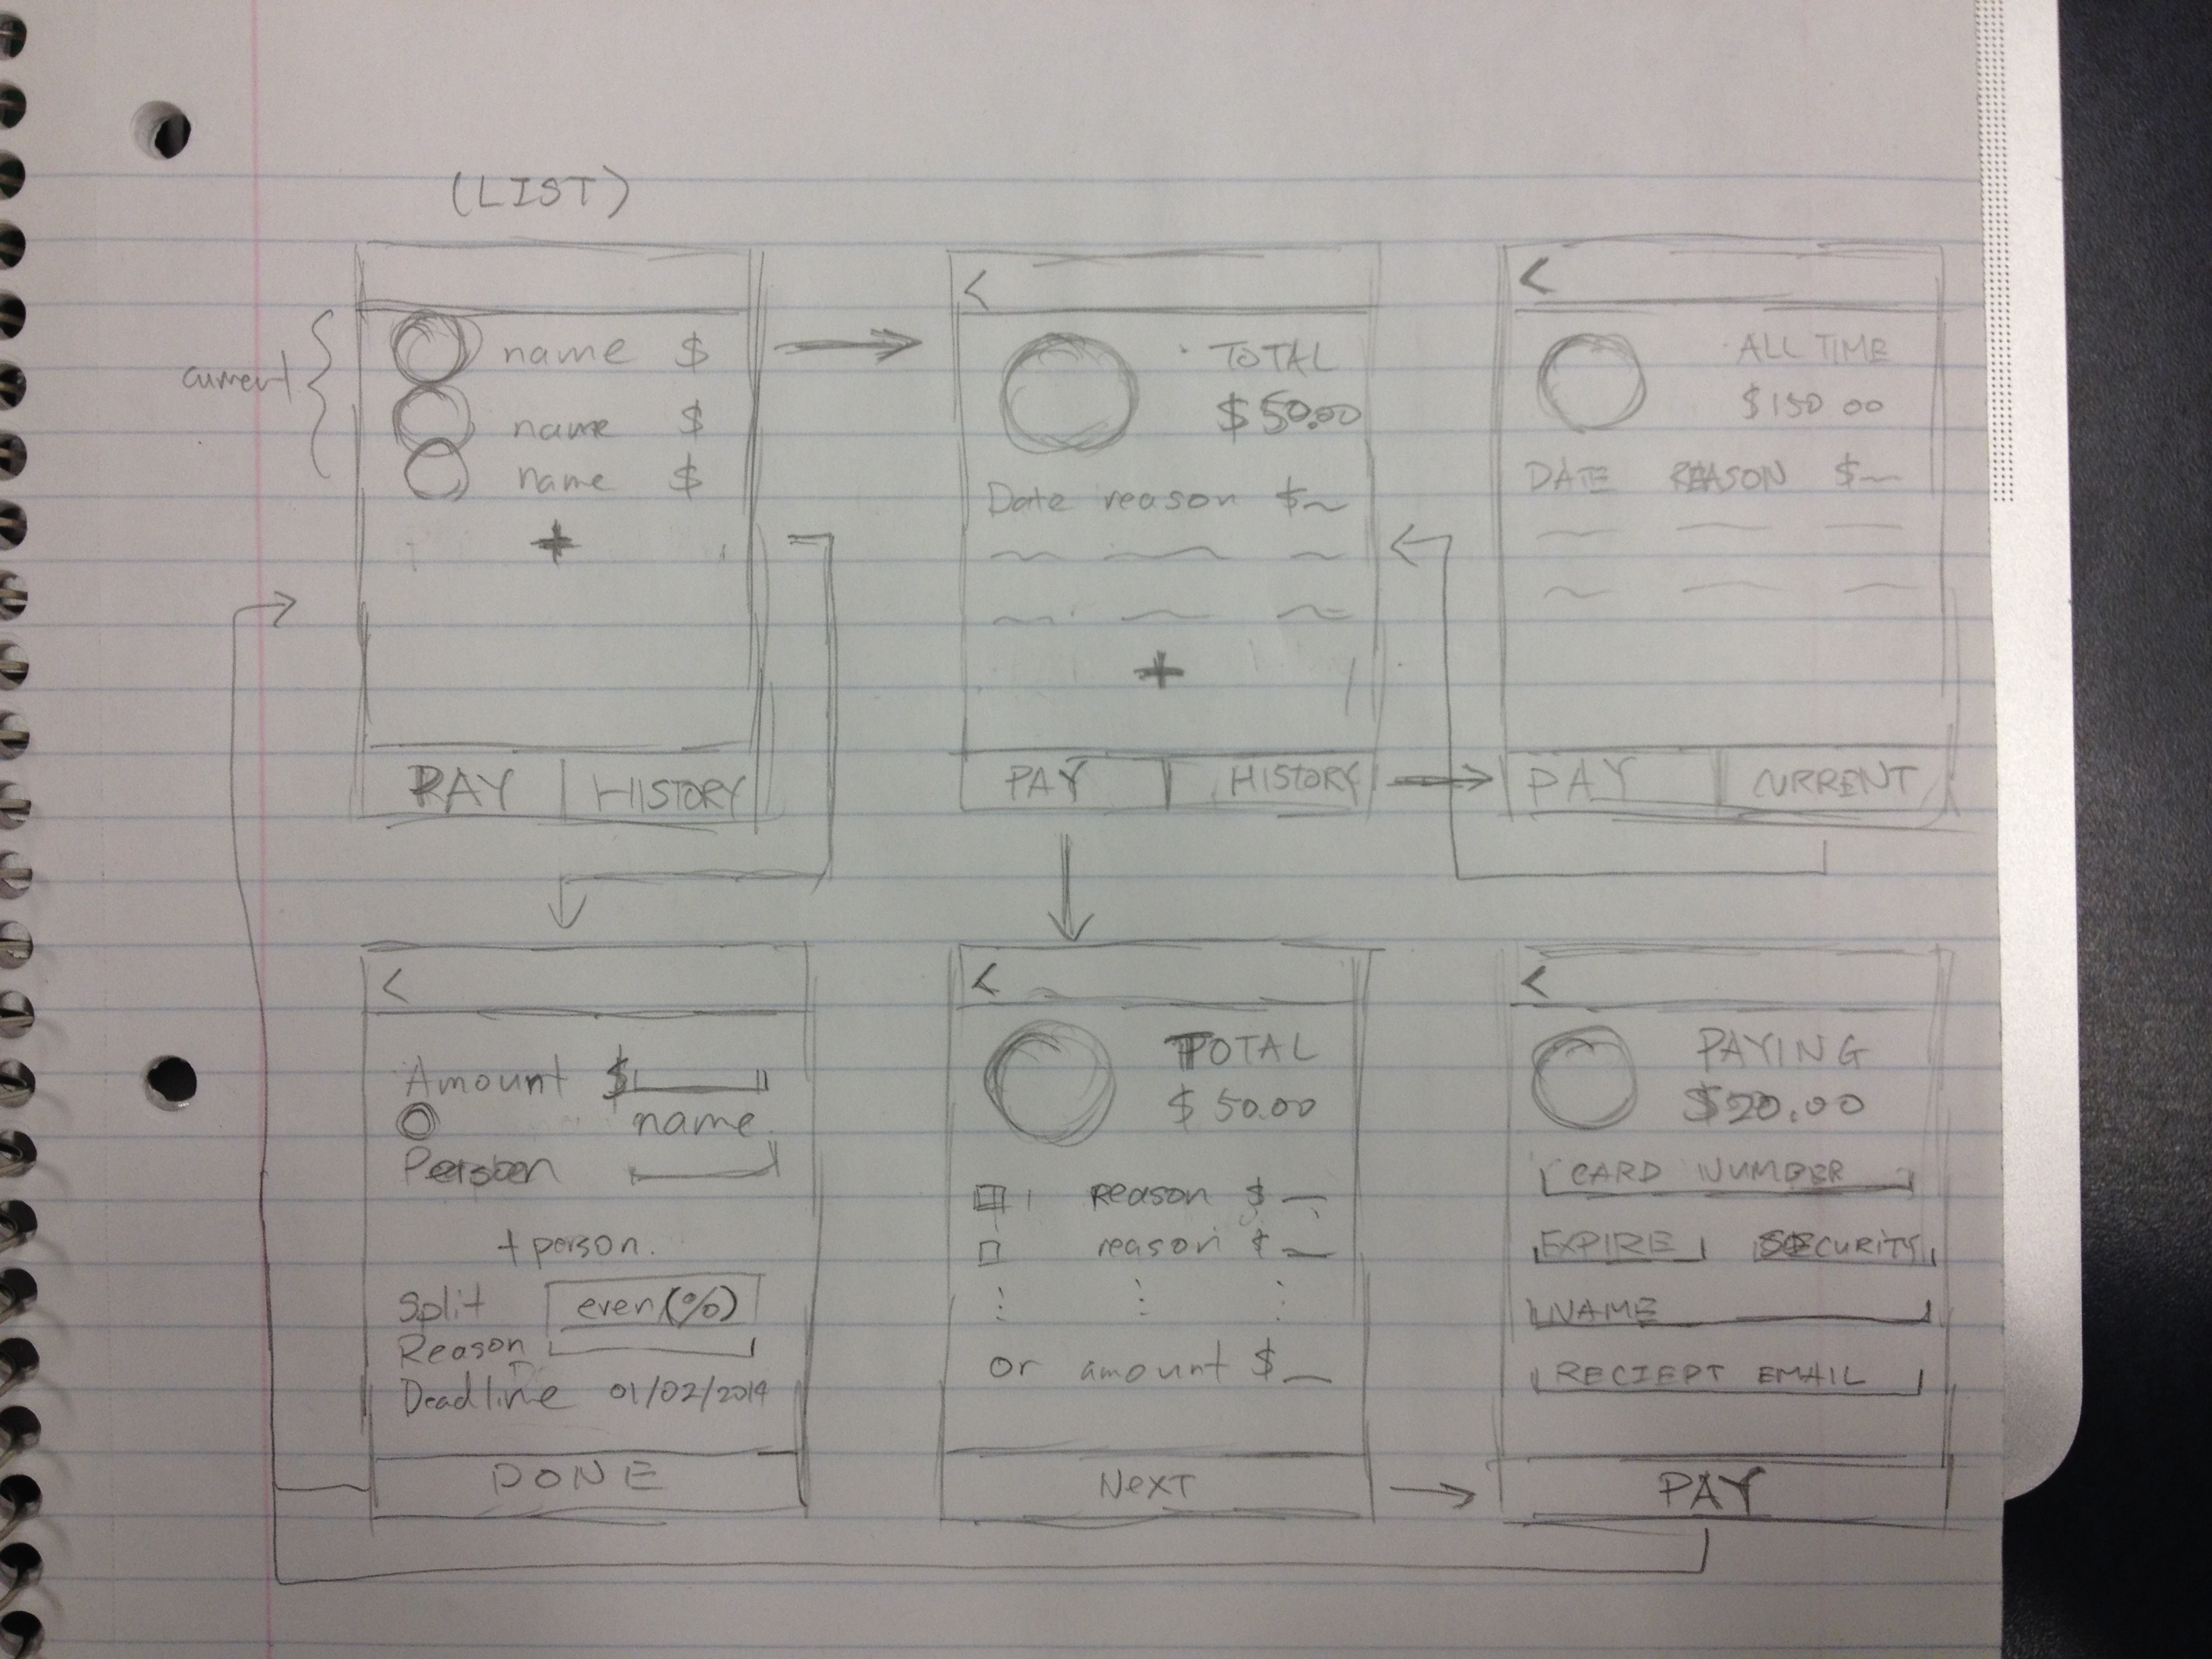 (LIST)
current
name $
name $
name $
+
PAY HISTORY
<
TOTAL
$50.00
Date reason $
+
PAY HISTORY
<
ALL TIME
$150 00
DATE REASON $
PAY CURRENT
<
Amount $
name
Person
+ person.
Split even (%)
Reason
Deadline 01/02/2014
DONE
<
TOTAL
$50.00
reason $
reason $
or amount $
NEXT
<
PAYING
$20.00
CARD NUMBER
EXPIRE SECURITY
NAME
RECIEPT EMAIL
PAY